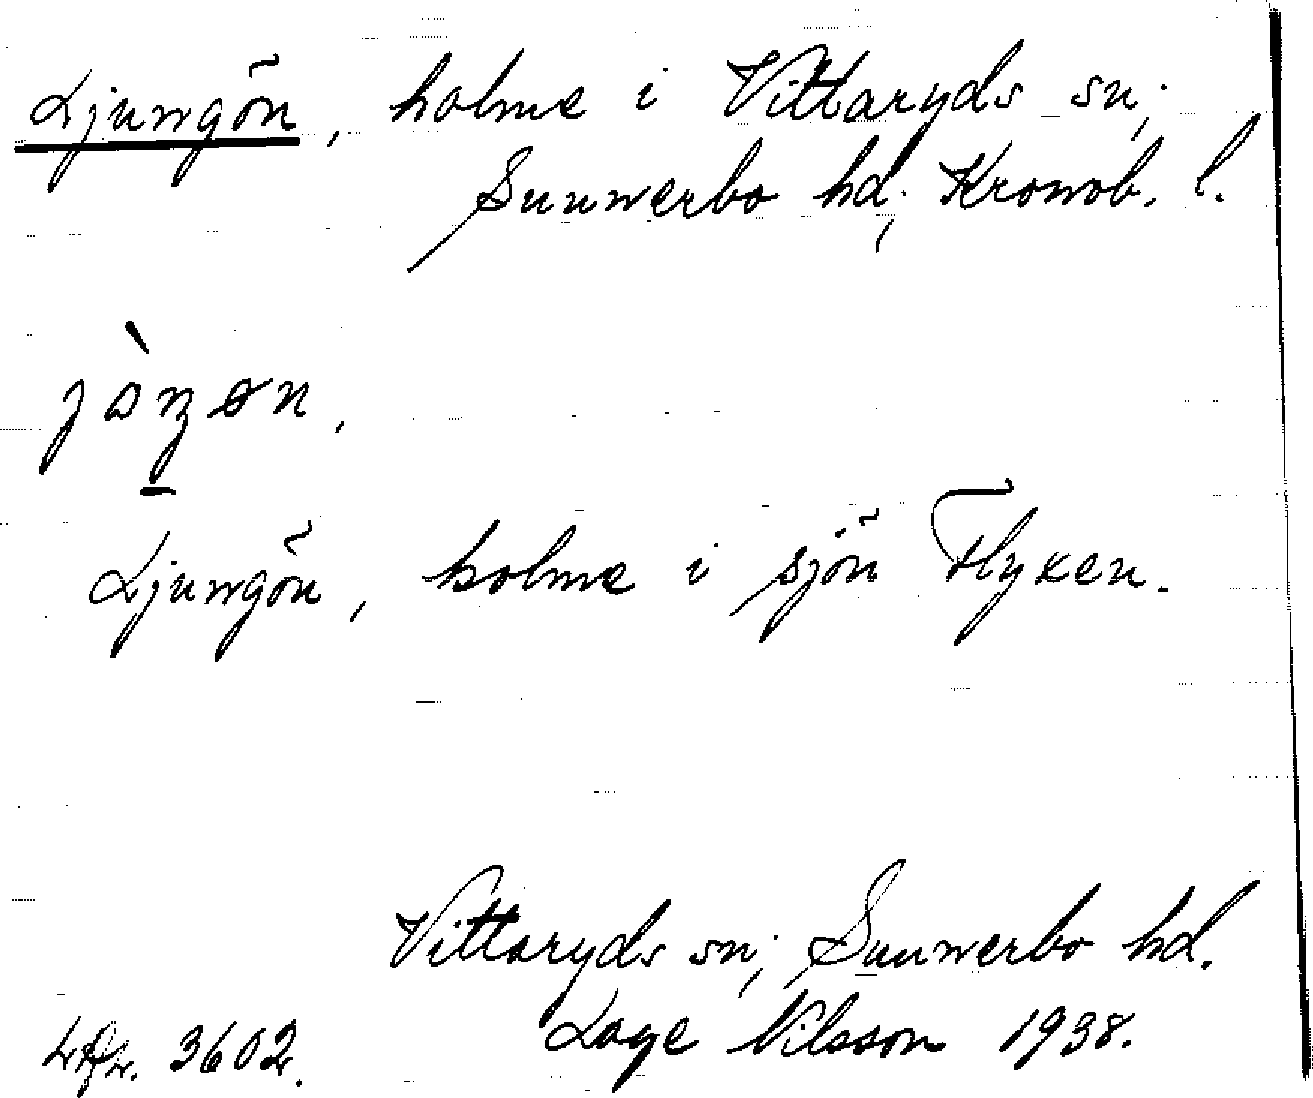 Ljungön, holme i Vittaryds sn;
Sunnerbo hd; Kronob. l.
Ljungön, holme i sjön Flyken.
Vittaryds sn; Sunnerbo hd.
3602. Lage Nilsson 1938.